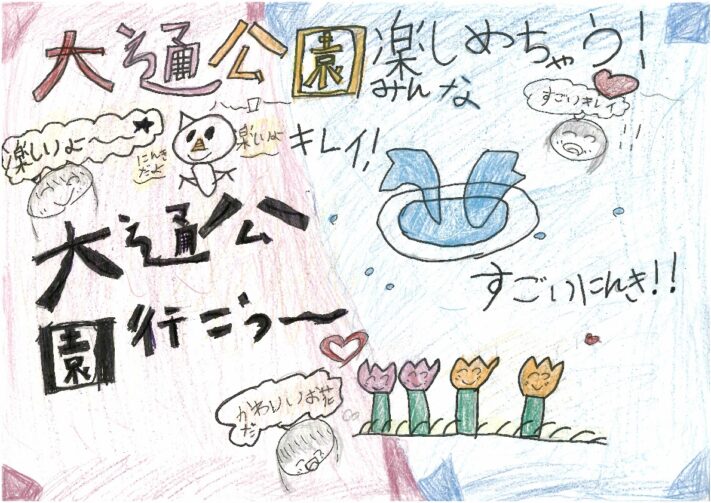 大通公園楽しめちゃう!
みんな
すごいキレイ
楽しいよ〜〜★
にんき
だよ
楽しいよ
キレイ!
大通公
園行こう〜
すごいにんき!!
かわいいお花
だ